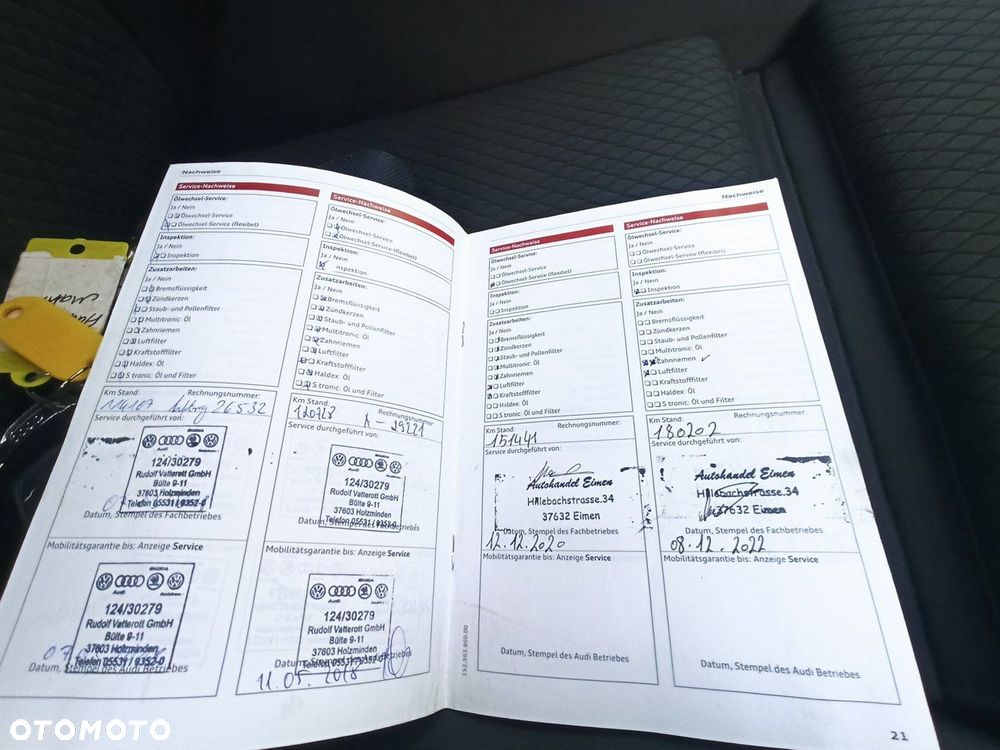 Nachweise
Service-Nachweise
Ölwechsel-Service:
Ja / Nein
Ölwechsel-Service
Ölwechsel-Service (flexibel)
Inspektion:
Ja / Nein
Inspektion
Zusatzarbeiten:
Ja / Nein
Bremsflüssigkeit
Zündkerzen
Staub- und Pollenfilter
Multitronic: Öl
Zahnriemen
Luftfilter
Kraftstofffilter
Haldex: Öl
S tronic: Öl und Filter
Km Stand: Rechnungsnummer:
114167 26532
Service durchgeführt von:
ŠKODA
Audi
124/30279
Rudolf Vatterott GmbH
Bülte 9-11
37603 Holzminden
Telefon 05531 / 9352-0
Datum, Stempel des Fachbetriebes
Mobilitätsgarantie bis: Anzeige Service
ŠKODA
Audi
124/30279
Rudolf Vatterott GmbH
Bülte 9-11
37603 Holzminden
Telefon 05531 / 9352-0
Datum, Stempel des Audi Betriebes
Service-Nachweise
Ölwechsel-Service:
Ja / Nein
Ölwechsel-Service
Ölwechsel-Service (flexibel)
Inspektion:
Ja / Nein
Inspektion
Zusatzarbeiten:
Ja / Nein
Bremsflüssigkeit
Zündkerzen
Staub- und Pollenfilter
Multitronic: Öl
Zahnriemen
Luftfilter
Kraftstofffilter
Haldex: Öl
S tronic: Öl und Filter
Km Stand: Rechnungsnummer:
120728
Service durchgeführt von:
ŠKODA
Audi
124/30279
Rudolf Vatterott GmbH
Bülte 9-11
37603 Holzminden
Telefon 05531 / 9352-0
Datum, Stempel des Fachbetriebes
Mobilitätsgarantie bis: Anzeige Service
ŠKODA
Audi
124/30279
Rudolf Vatterott GmbH
Bülte 9-11
37603 Holzminden
Telefon 05531 / 9352-0
Datum, Stempel des Audi Betriebes
11.05.2018
Nachweise
Service-Nachweise
Ölwechsel-Service:
Ja / Nein
Ölwechsel-Service
Ölwechsel-Service (flexibel)
Inspektion:
Ja / Nein
Inspektion
Zusatzarbeiten:
Ja / Nein
Bremsflüssigkeit
Zündkerzen
Staub- und Pollenfilter
Multitronic: Öl
Zahnriemen
Luftfilter
Kraftstofffilter
Haldex: Öl
S tronic: Öl und Filter
Km Stand: Rechnungsnummer:
151441
Service durchgeführt von:
Autohandel Eimen
Hillebachstrasse.34
37632 Eimen
Datum, Stempel des Fachbetriebes
12.12.2020
Mobilitätsgarantie bis: Anzeige Service
Datum, Stempel des Audi Betriebes
Service-Nachweise
Ölwechsel-Service:
Ja / Nein
Ölwechsel-Service
Ölwechsel-Service (flexibel)
Inspektion:
Ja / Nein
Inspektion
Zusatzarbeiten:
Ja / Nein
Bremsflüssigkeit
Zündkerzen
Staub- und Pollenfilter
Multitronic: Öl
Zahnriemen
Luftfilter
Kraftstofffilter
Haldex: Öl
S tronic: Öl und Filter
Km Stand: Rechnungsnummer:
180202
Service durchgeführt von:
Autohandel Eimen
Hillebachstrasse.34
37632 Eimen
Datum, Stempel des Fachbetriebes
08.12.2022
Mobilitätsgarantie bis: Anzeige Service
Datum, Stempel des Audi Betriebes
21
OTOMOTO